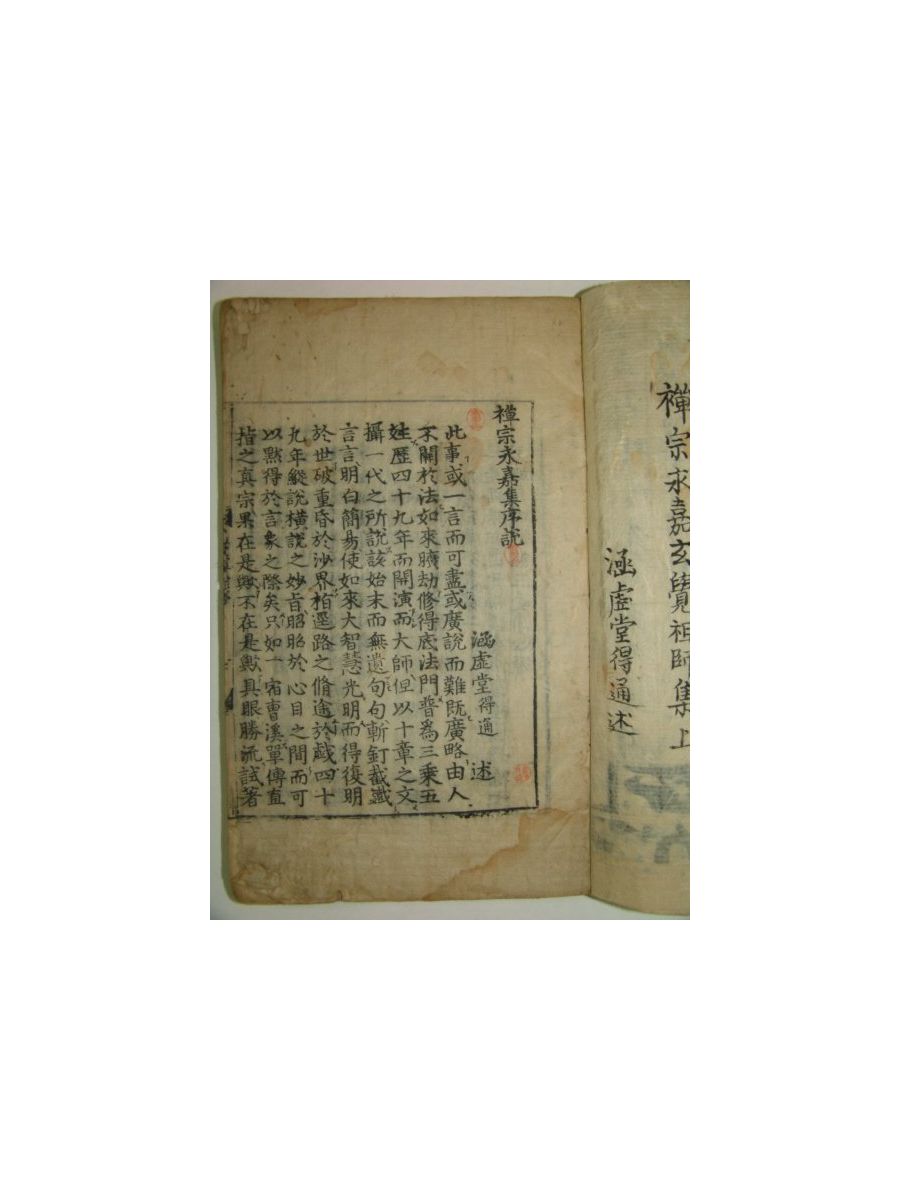 禪宗永嘉玄覺祖師集上
涵虛堂得通述
禪宗永嘉集序說
涵虛堂得通 述
此事或一言而可盡或廣說而難旣廣略由人
不關於法如來曠劫修得底法門普爲三乘五
姓歷四十九年而開演而大師但以十章之文
攝一代之所說該始末而無遺句句斬釘截鐵
言言明白簡易使如來大智慧光明而得復明
於世破重昏於沙界指迷路之脩途於戱四十
九年縱說橫說之妙旨昭昭於心目之間而可
以默得於言象之際矣只如一宿曹溪單傳直
指之眞宗果在是歟不在是歟具眼勝流試著